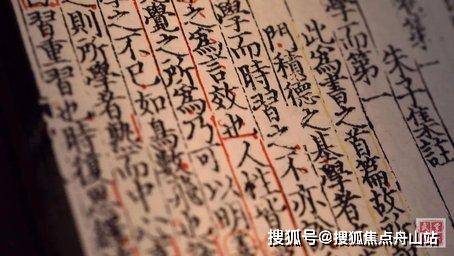 第一
朱子集註
學而第一
此爲書之首篇故
門積德之基學者
學而時習之不亦
之爲言效也人性皆
覺之所爲乃可以明
之不已如鳥數飛也
之則所學者熟而中
習重習也時復思繹
搜狐号@搜狐焦点舟山站